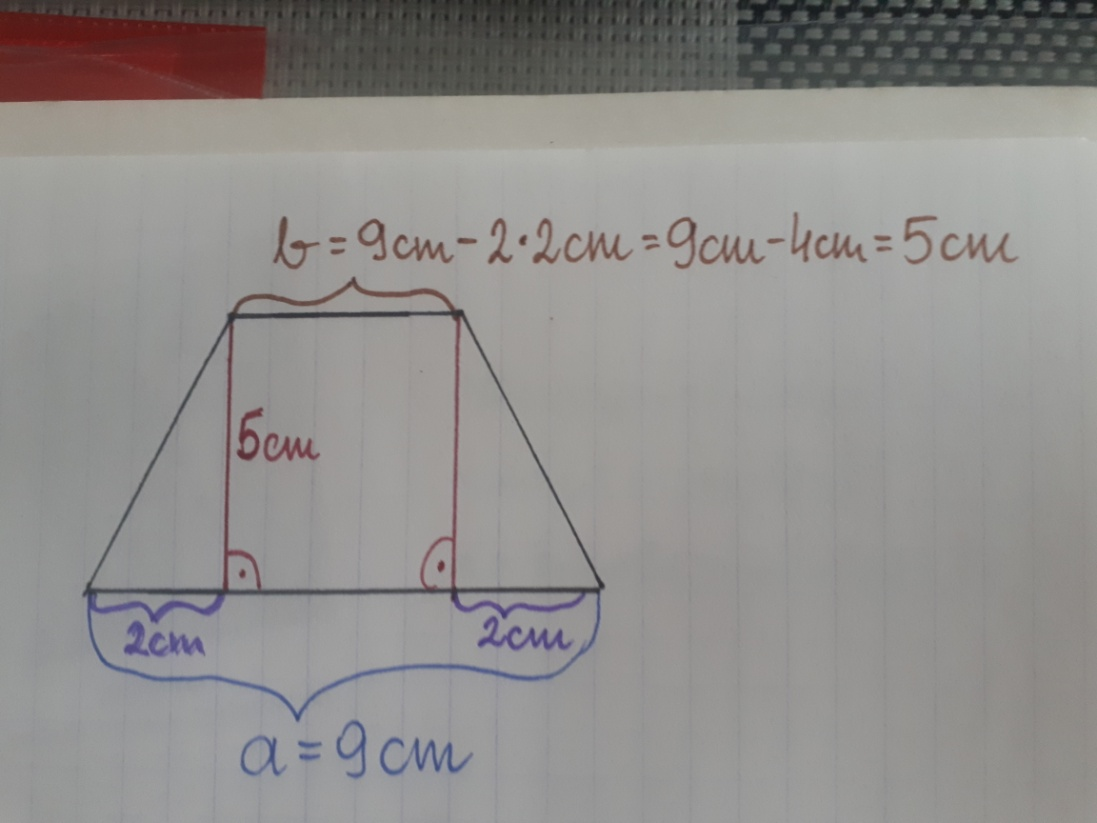 b = 9cm - 2·2cm = 9cm - 4cm = 5cm
5cm
2cm 2cm
a = 9cm